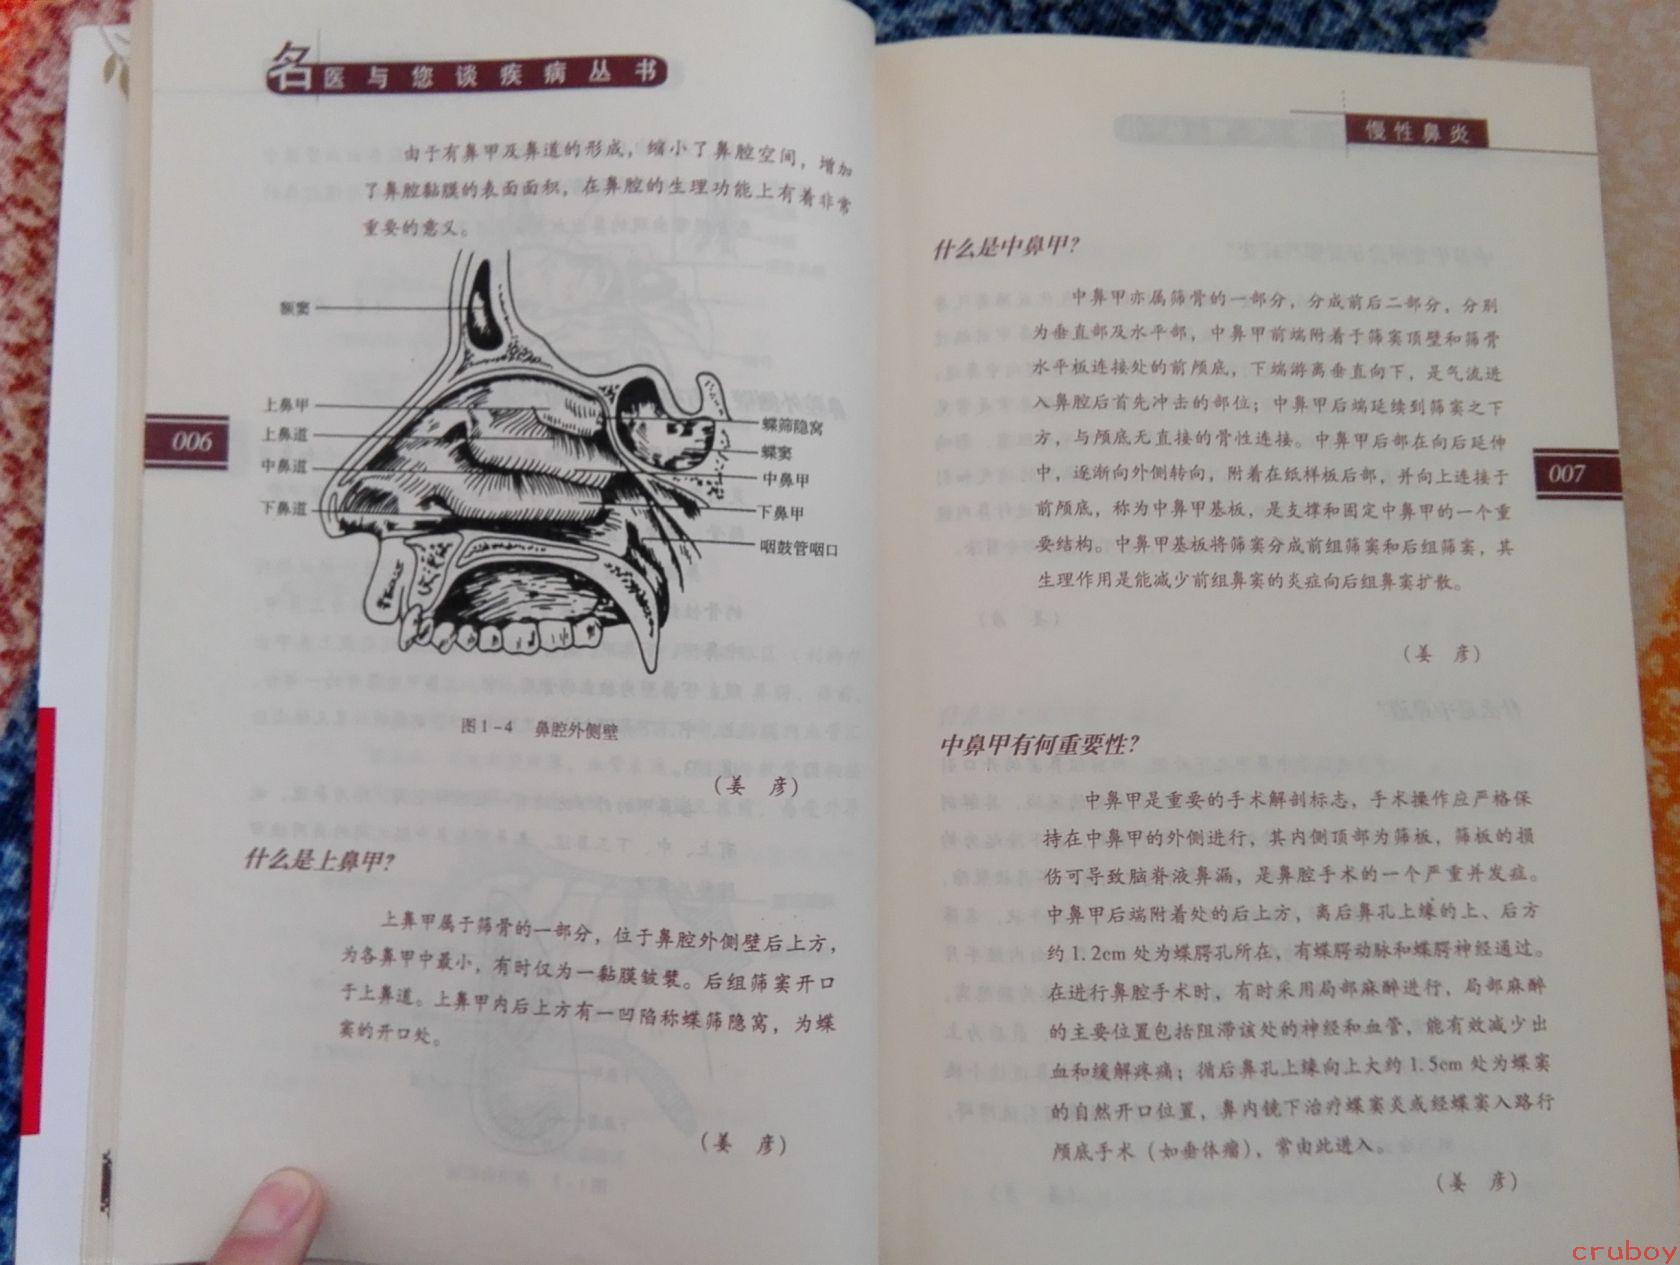 名医与您谈疾病丛书
由于有鼻甲及鼻道的形成，缩小了鼻腔空间，增加
了鼻腔黏膜的表面面积，在鼻腔的生理功能上有着非常
重要的意义。
额窦
上鼻甲
上鼻道
中鼻道
下鼻道
蝶筛隐窝
蝶窦
中鼻甲
下鼻甲
咽鼓管咽口
006
图1-4 鼻腔外侧壁
（姜 彦）
什么是上鼻甲？
上鼻甲属于筛骨的一部分，位于鼻腔外侧壁后上方，
为各鼻甲中最小，有时仅为一黏膜皱襞。后组筛窦开口
于上鼻道。上鼻甲内后上方有一凹陷称蝶筛隐窝，为蝶
窦的开口处。
（姜 彦）
慢性鼻炎
什么是中鼻甲？
中鼻甲亦属筛骨的一部分，分成前后二部分，分别
为垂直部及水平部，中鼻甲前端附着于筛窦顶壁和筛骨
水平板连接处的前颅底，下端游离垂直向下，是气流进
入鼻腔后首先冲击的部位；中鼻甲后端延续到筛窦之下
方，与颅底无直接的骨性连接。中鼻甲后部在向后延伸
中，逐渐向外侧转向，附着在纸样板后部，并向上连接于
前颅底，称为中鼻甲基板，是支撑和固定中鼻甲的一个重
要结构。中鼻甲基板将筛窦分成前组筛窦和后组筛窦，其
生理作用是能减少前组鼻窦的炎症向后组鼻窦扩散。
007
（姜 彦）
中鼻甲有何重要性？
中鼻甲是重要的手术解剖标志，手术操作应严格保
持在中鼻甲的外侧进行，其内侧顶部为筛板，筛板的损
伤可导致脑脊液鼻漏，是鼻腔手术的一个严重并发症。
中鼻甲后端附着处的后上方，离后鼻孔上缘的上、后方
约1.2cm处为蝶腭孔所在，有蝶腭动脉和蝶腭神经通过。
在进行鼻腔手术时，有时采用局部麻醉进行，局部麻醉
的主要位置包括阻滞该处的神经和血管，能有效减少出
血和缓解疼痛；循后鼻孔上缘向上大约1.5cm处为蝶窦
的自然开口位置，鼻内镜下治疗蝶窦炎或经蝶窦入路行
颅底手术（如垂体瘤），常由此进入。
（姜 彦）
cruboy